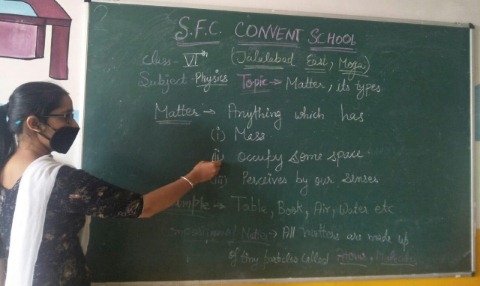 S.F.C. CONVENT SCHOOL
Class - VIth (Jalalabad East, Moga)
Subject - Physics Topic → Matter, its types
Matter → Anything which has
(i) Mass
(ii) occupy some space
(iii) Perceives by our senses
→ Table, Book, Air, Water etc
of Matter → All matters are made up
of tiny particles called